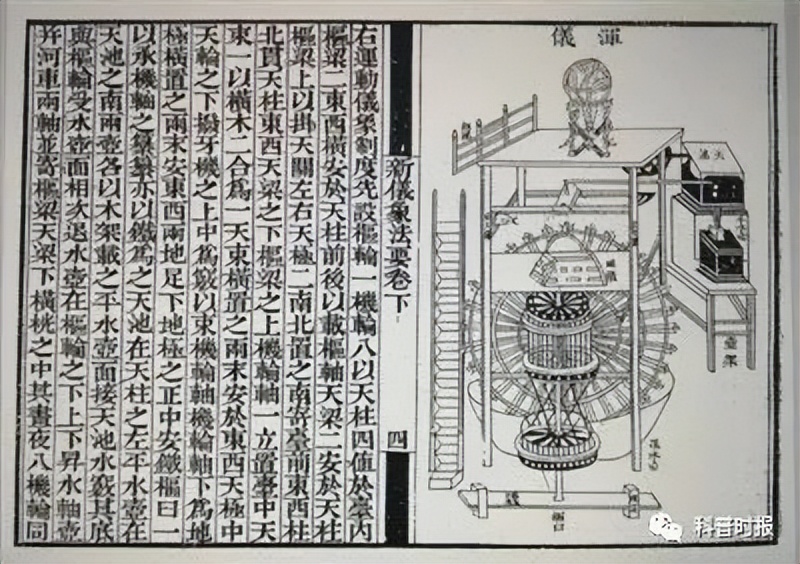 渾儀
天池
壺架
退水壺
新儀象法要卷下
四
右運動儀象制度先設樞輪一機輪八以天柱四值於臺内
樞梁二東西橫安於天柱前後以載樞軸天梁二安於天柱
樞梁上以掛天關左右天極二南北置之南寄臺前東西柱
北貫天柱東西天梁之下樞梁之上機輪軸一立置臺中天
束一以橫木二合爲一天束橫置之兩末安於東西天極中
天輪之下撥牙機之上中爲竅以束機輪軸機輪軸下爲地
極橫置之兩末安東西兩地足下地極之正中安鐵樞臼一
以承機軸之纂纂亦以鐵爲之天池在天柱之左平水壺在
天池之南兩壺各以木架載之平水壺面接天池水竅其底
與樞輪受水壺面相次退水壺在樞輪之下上下昇水軸壺
并河車兩軸並寄樞梁天梁下橫桄之中其晝夜八機輪同
科普时报